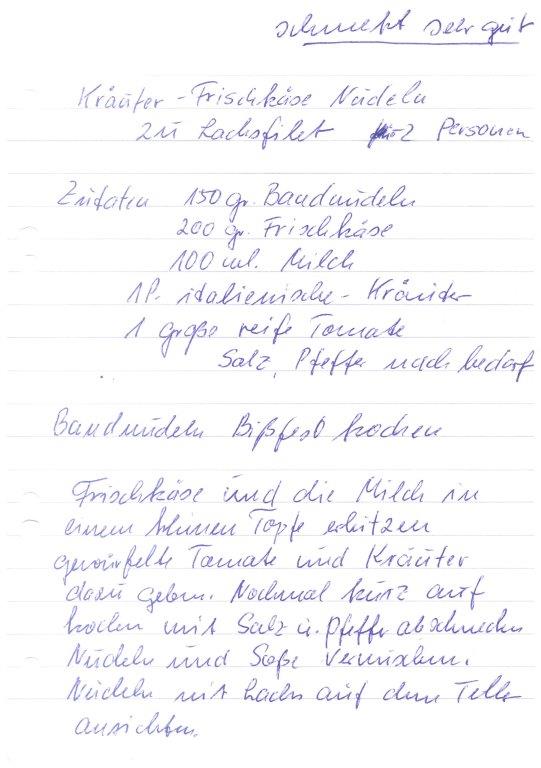 schmeckt sehr gut
Kräuter-Frischkäse Nudeln
zu Lachsfilet für 2 Personen
Zutaten 150 gr. Bandnudeln
200 gr. Frischkäse
100 ml. Milch
1 P. italienische-Kräuter
1 große reife Tomate
Salz, Pfeffer nach bedarf
Bandnudeln Bißfest kochen
Frischkäse und die Milch in
einem kleinen Topfe erhitzen
gewürfelte Tomate und Kräuter
dazu geben. Nochmal kurz auf
kochen mit Salz u. Pfeffer abschmecken
Nudeln und Soße vermischen.
Nudeln mit Lachs auf dem Teller
anrichten.